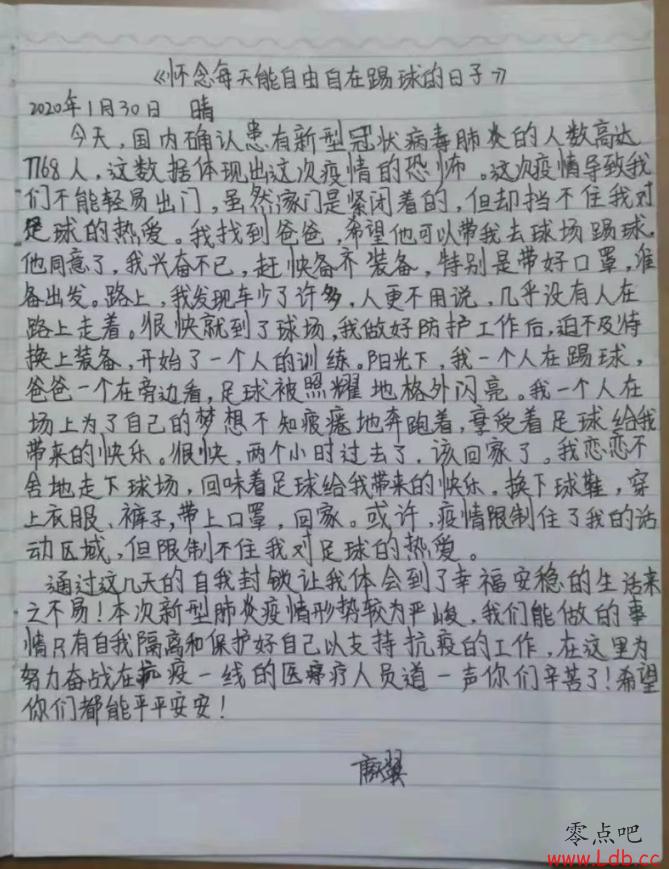 《怀念每天能自由自在踢球的日子》
2020年1月30日 晴
今天,国内确认患有新型冠状病毒肺炎的人数高达
7768人,这数据体现出这次疫情的恐怖。这次疫情导致我
们不能轻易出门,虽然家门是紧闭着的,但却挡不住我对
足球的热爱。我找到爸爸,希望他可以带我去球场踢球,
他同意了,我兴奋不已,赶快备齐装备,特别是带好口罩,准
备出发。路上,我发现车少了许多,人更不用说,几乎没有人在
路上走着。很快就到了球场,我做好防护工作后,迫不及待
换上装备,开始了一个人的训练。阳光下,我一个人在踢球,
爸爸一个在旁边看,足球被照耀地格外闪亮。我一个人在
场上为了自己的梦想不知疲惫地奔跑着,享受着足球给我
带来的快乐。很快,两个小时过去了,该回家了。我恋恋不
舍地走下球场,回味着足球给我带来的快乐。换下球鞋,穿
上衣服、裤子,带上口罩,回家。或许,疫情限制住了我的活
动区域,但限制不住我对足球的热爱。
通过这几天的自我封锁让我体会到了幸福安稳的生活来
之不易!本次新型肺炎疫情形势较为严峻,我们能做的事
情只有自我隔离和保护好自己以支持抗疫的工作,在这里为
努力奋战在抗疫一线的医疗人员道一声你们辛苦了!希望
你们都能平平安安!
零点吧
www.Ldb.cc